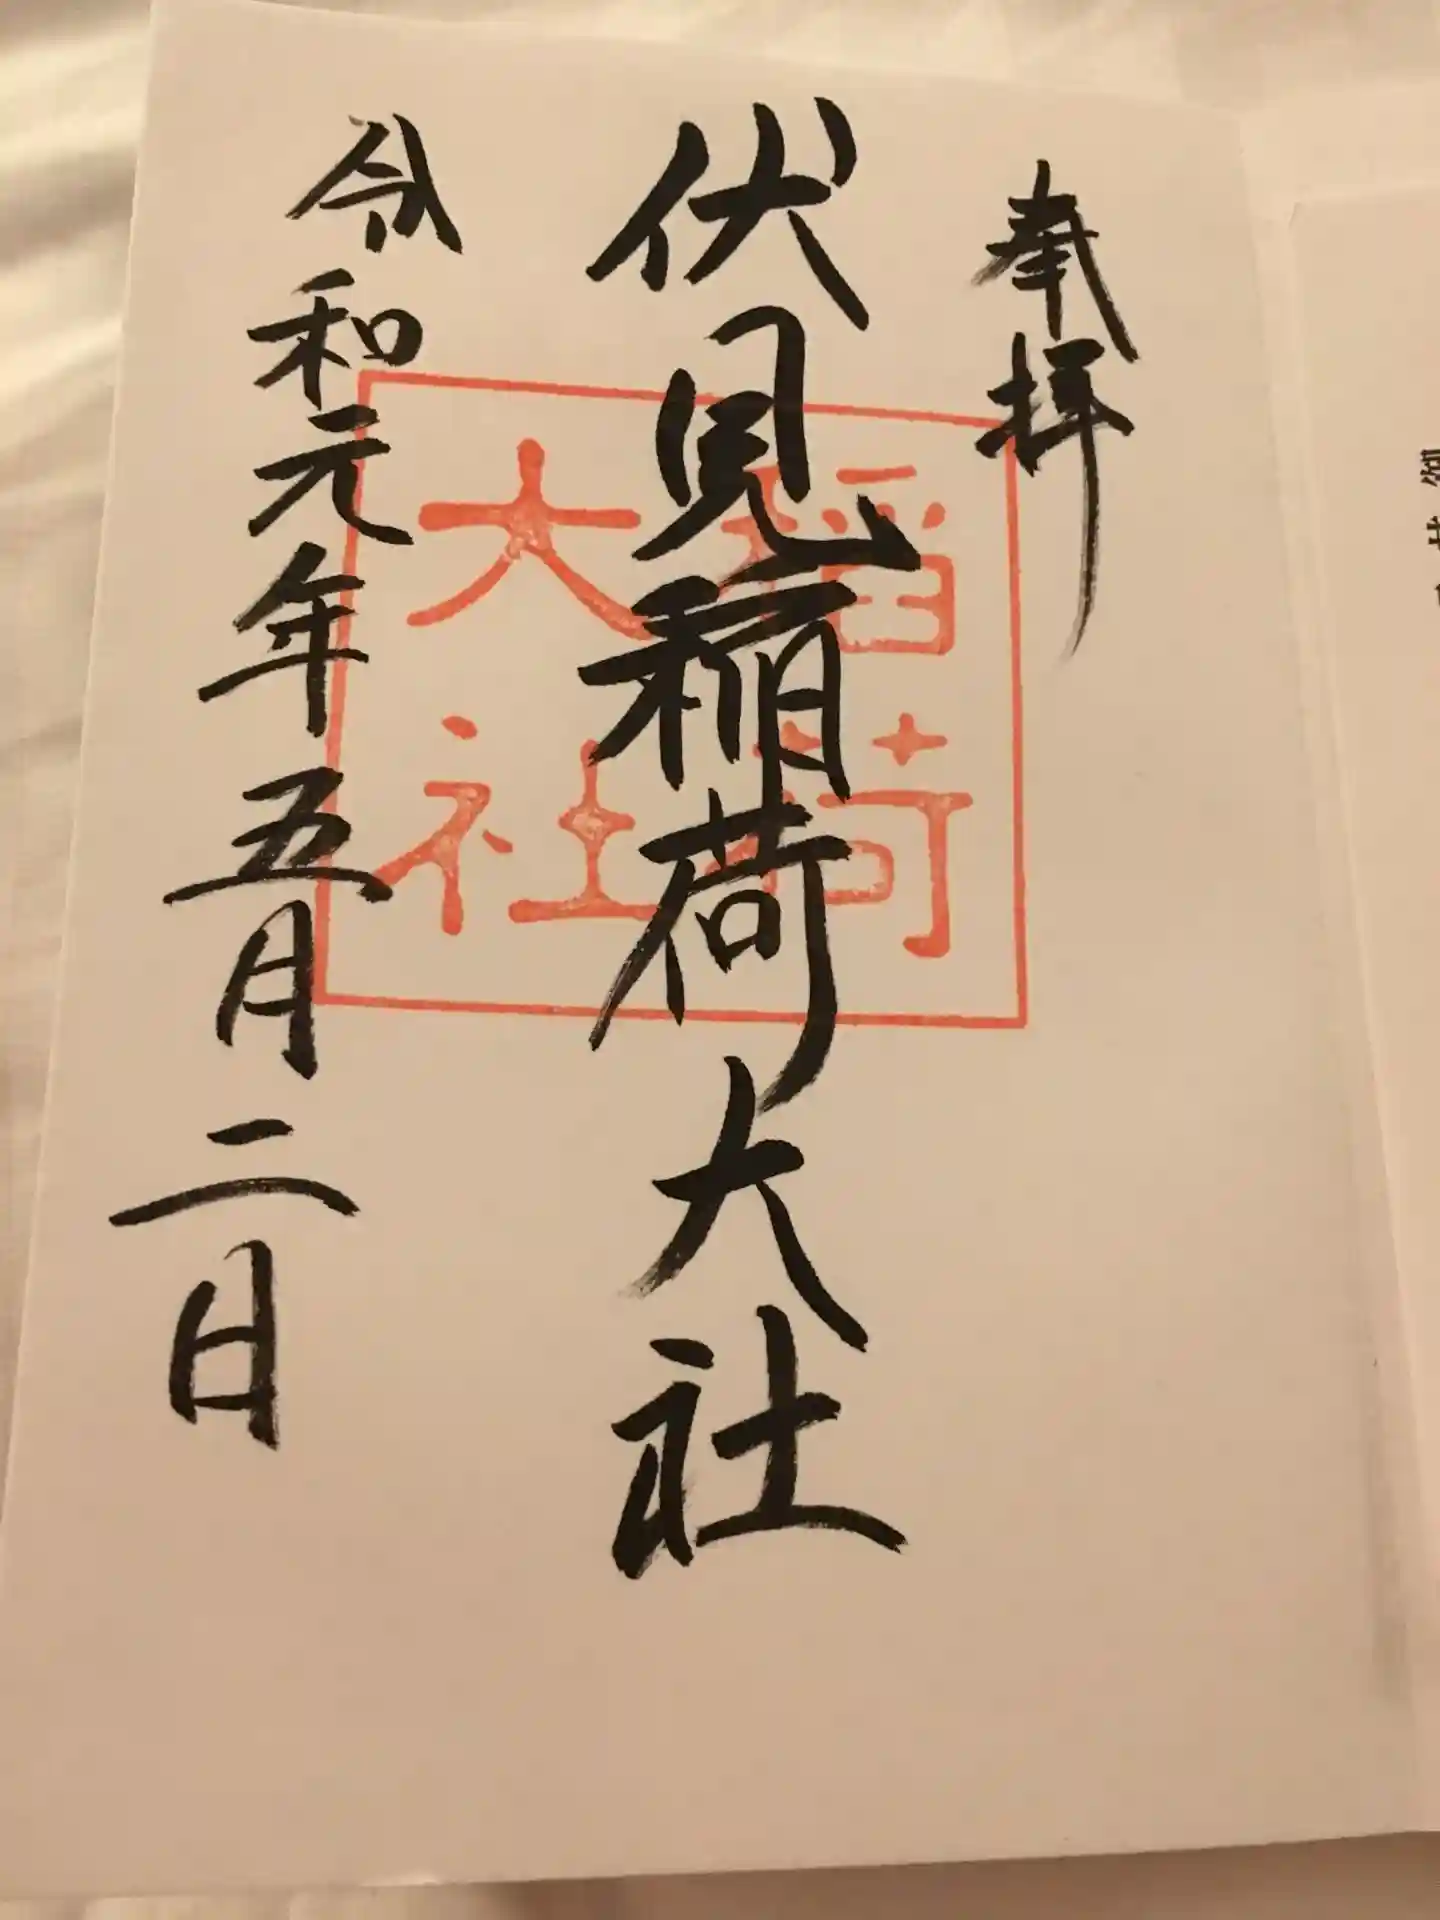 奉拝
伏見稲荷大社
令和元年五月二日
稲荷
大社